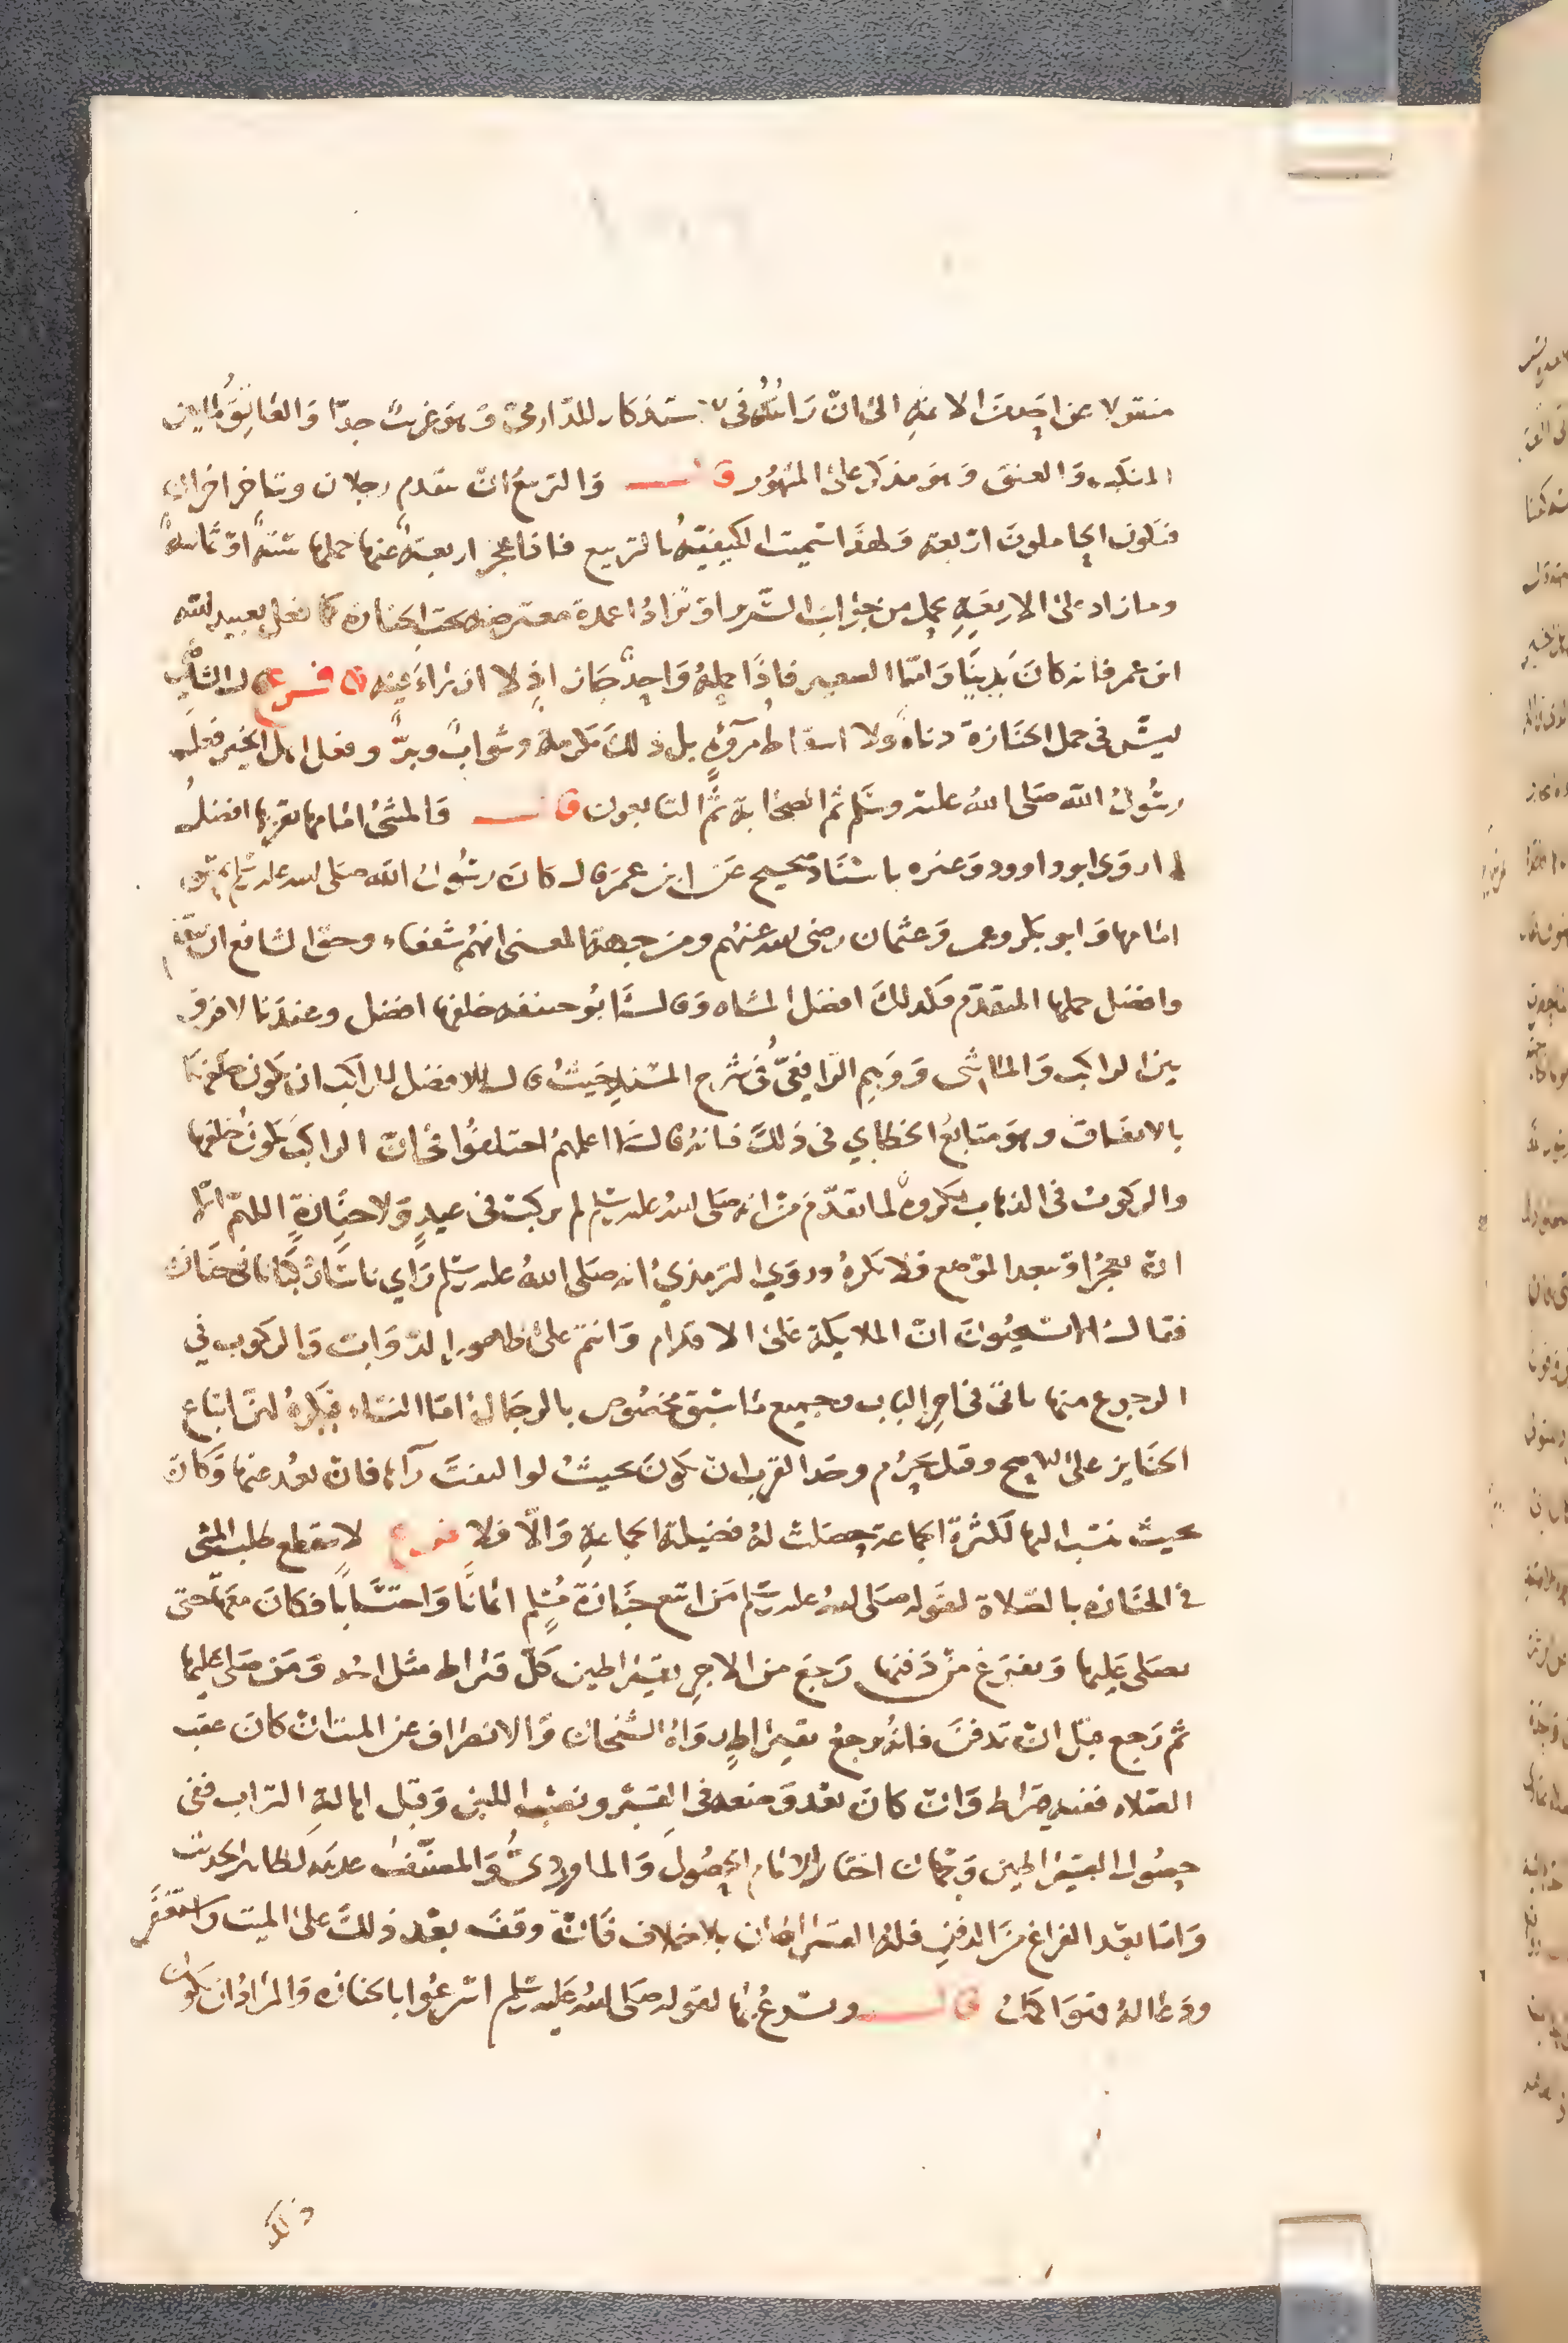 منقولا عن احد من الاعنه الى ان رايته في الاستذكار للدارمي وهو غريب جدا والعاتق ما بين
المنكب والعنق وهو مذكر على المشهور قال والتربيع ان يتقدم رجلان ويتاخر اخران
فيكون الحاملون اربعة ولهذا سميت الكيفية بالتربيع فاذا عجز اربعة عنها حملها ستة او ثمانية
وما زاد على الاربعة يحمل من جوانب السرير او تزاد اعمدة معترضة تحت الجنازة كما فعل بعبيد الله
ابن عمر فانه كان بدينا واما الصغير فاذا حمله واحد جاز اذ لا ازراء فيه فرع قال الشافعي
ليس في حمل الجنازة دناة ولا اسقاط مروة بل ذلك مكرمة وثواب وبر وفعل اهل الخير فعله
رسول الله صلى الله عليه وسلم ثم الصحابة ثم التابعون قال والمشي امامها بقربها افضل
لما روى ابو داوود وغيره باسناد صحيح عن ابن عمر قال كان رسول الله صلى الله عليه وسلم يمشي
امامها وابو بكر وعمر وعثمان رضي الله عنهم ومن جهة المعنى انهم شفعاء وحق الشافع ان يتقدم
وافضل حملها المتقدم فكذلك افضل المشاه وقال ابو حنيفه خلفها افضل وعندنا لا فرق
بين الراكب والماشي ووهم الرافعي في شرح المسند حيث قال الافضل للراكب ان يكون خلفها
بالاتفاق وهو متابع الخطابي في ذلك فانه قال لا اعلمهم اختلفوا في ان الراكب يكون خلفها
والركوب في الذهاب مكروه لما تقدم من انه صلى الله عليه وسلم لم يركب في عيد ولا جنازة اللهم الا
ان يعجز او يبعد الموضع فلا يكره وروي الترمذي انه صلى الله عليه وسلم راي ناسا ركبانا في جنازة
فقال الا تستحيون ان الملايكة على الاقدام وانتم على ظهور الدواب والركوب في
الرجوع منها ياتي في اخر الباب وجميع ما سبق مخصوص بالرجال اما النساء فيكره لهن اتباع
الجنايز على الاصح وقيل يحرم وحد القرب ان يكون بحيث لو التفت رآها فان بعد عنها وكان
بحيث ينسب اليها لكثرة الجماعة حصلت له فضيلة الجماعة والا فلا فرع لا ينقطع طلب المشي
في الجنازه بالصلاة لقوله صلى الله عليه وسلم من اتبع جنازة مسلم ايمانا واحتسابا فكان معها حتى
يصلى عليها ويفرغ من دفنها رجع من الاجر بقيراطين كل قيراط مثل احد ومن صلى عليها
ثم رجع قبل ان تدفن فانه يرجع بقيراط رواه الشيخان والانصراف عن الميت ان كان عقب
الصلاه ففيه قيراط وان كان بعد وضعه في القبر ونصب اللبن وقبل اهالة التراب ففي
حصول القيراطين وجهان اختار الامام الحصول والماوردي والمصنف عدمه لظاهر الحديث
واما بعد الفراغ من الدفن فله القيراطان بلا خلاف فان وقف بعد ذلك على الميت واستغفر
ودعا له فهو اكمل قال ويسرع بها لقوله صلى الله عليه وسلم اسرعوا بالجنازه والمراد ان يكون
ذلك